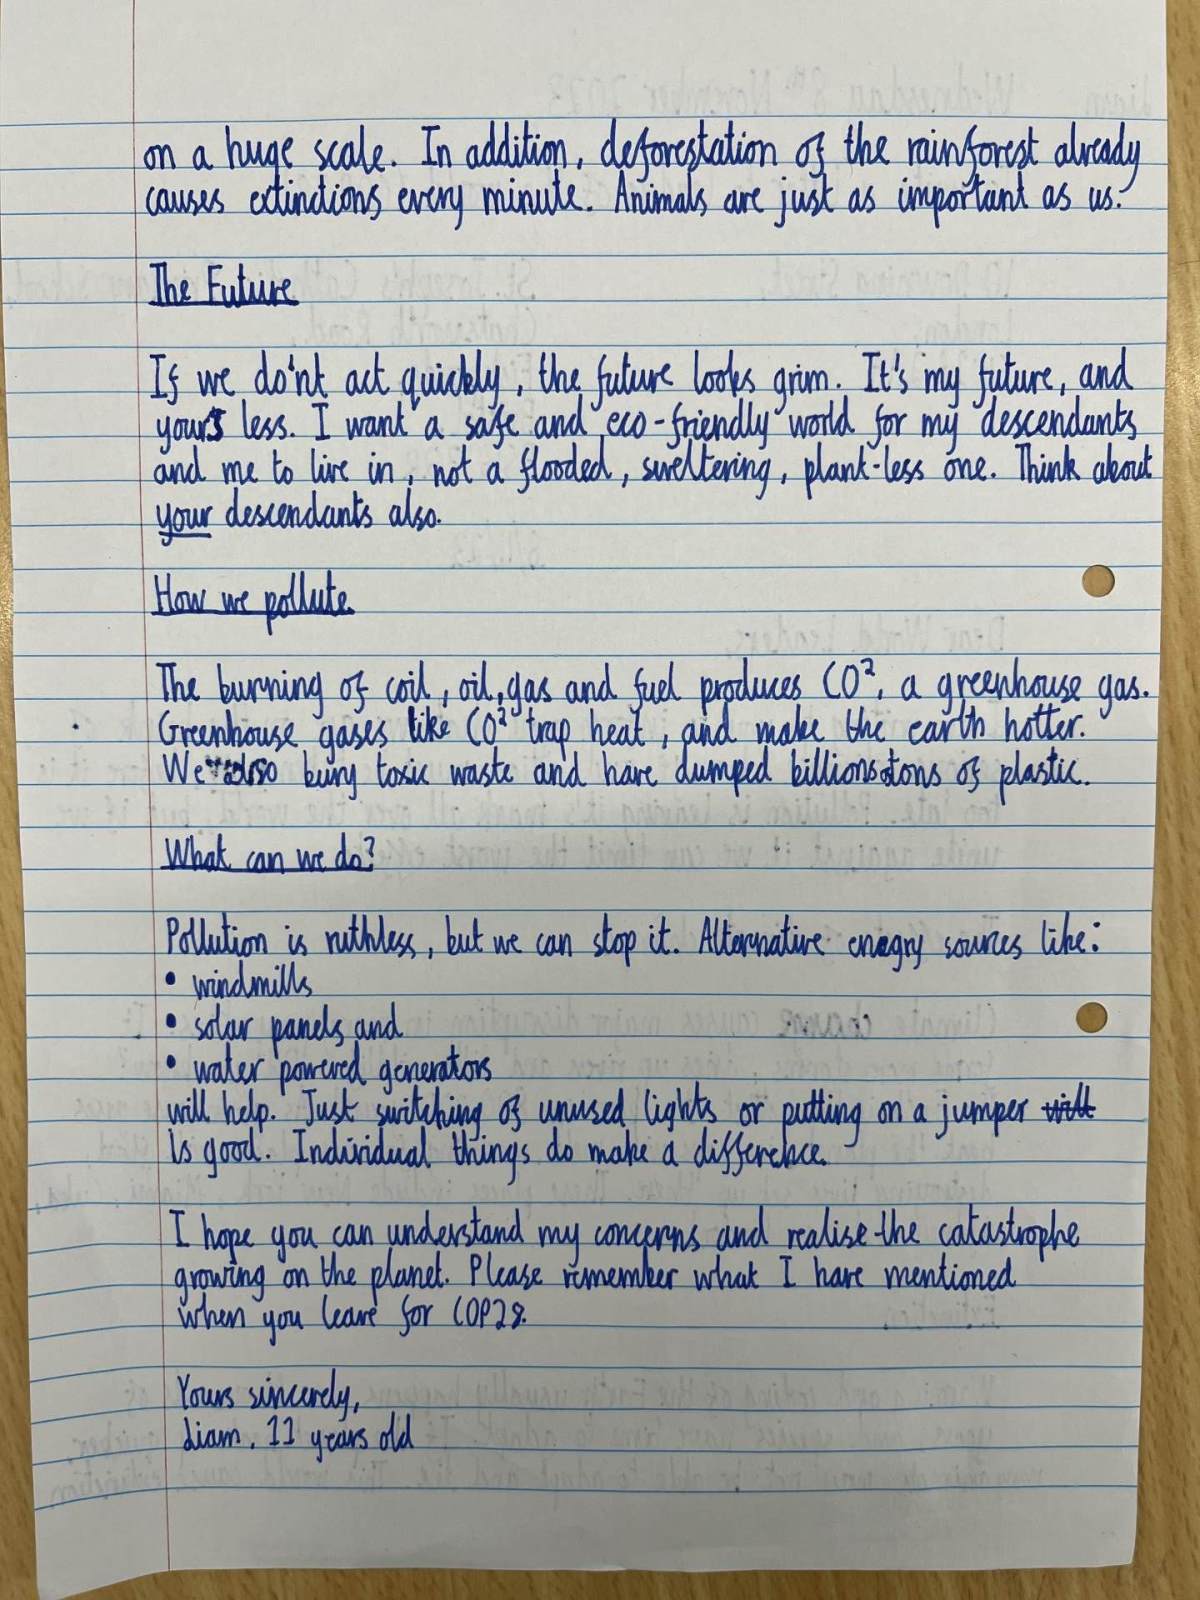 on a huge scale. In addition, deforestation of the rainforest already
causes extinctions every minute. Animals are just as important as us.
The Future
If we do'nt act quickly, the future looks grim. It's my future, and
yours less. I want a safe and eco-friendly world for my descendants
and me to live in, not a flooded, sweltering, plant-less one. Think about
your descendants also.
How we pollute
The burning of coil, oil, gas and fuel produces CO², a greenhouse gas.
Greenhouse gases like CO² trap heat, and make the earth hotter.
We also bury toxic waste and have dumped billions tons of plastic.
What can we do?
Pollution is ruthless, but we can stop it. Alternative enegry sources like:
• windmills
• solar panels and
• water powered generators
will help. Just switching of unused lights or putting on a jumper will
is good. Individual things do make a difference.
I hope you can understand my concerns and realise the catastrophe
growing on the planet. Please remember what I have mentioned
when you leave for COP28.
Yours sincerely,
Liam, 11 years old